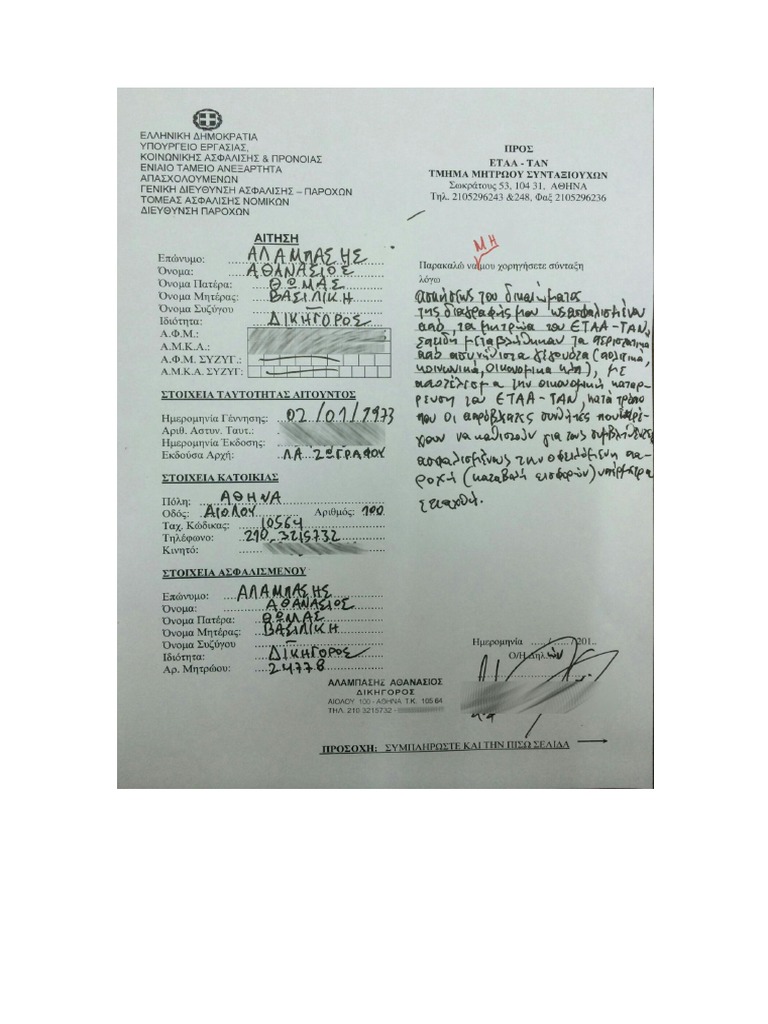 ΕΛΛΗΝΙΚΗ ΔΗΜΟΚΡΑΤΙΑ
ΥΠΟΥΡΓΕΙΟ ΕΡΓΑΣΙΑΣ,
ΚΟΙΝΩΝΙΚΗΣ ΑΣΦΑΛΙΣΗΣ & ΠΡΟΝΟΙΑΣ
ΕΝΙΑΙΟ ΤΑΜΕΙΟ ΑΝΕΞΑΡΤΗΤΑ
ΑΠΑΣΧΟΛΟΥΜΕΝΩΝ
ΓΕΝΙΚΗ ΔΙΕΥΘΥΝΣΗ ΑΣΦΑΛΙΣΗΣ – ΠΑΡΟΧΩΝ
ΤΟΜΕΑΣ ΑΣΦΑΛΙΣΗΣ ΝΟΜΙΚΩΝ
ΔΙΕΥΘΥΝΣΗ ΠΑΡΟΧΩΝ
ΑΙΤΗΣΗ
Επώνυμο: ΑΛΑΜΠΑΣΗΣ
Όνομα: ΑΘΑΝΑΣΙΟΣ
Όνομα Πατέρα: ΘΩΜΑΣ
Όνομα Μητέρας: ΒΑΣΙΛΙΚΗ
Όνομα Συζύγου –
Ιδιότητα: ΔΙΚΗΓΟΡΟΣ
Α.Φ.Μ.:
Α.Μ.Κ.Α.:
Α.Φ.Μ. ΣΥΖΥΓ.:
Α.Μ.Κ.Α. ΣΥΖΥΓ:
ΣΤΟΙΧΕΙΑ ΤΑΥΤΟΤΗΤΑΣ ΑΙΤΟΥΝΤΟΣ
Ημερομηνία Γέννησης: 02/01/1973
Αριθ. Αστυν. Ταυτ.:
Ημερομηνία Έκδοσης:
Εκδούσα Αρχή: ΖΩΓΡΑΦΟΥ
ΣΤΟΙΧΕΙΑ ΚΑΤΟΙΚΙΑΣ
Πόλη: ΑΘΗΝΑ
Οδός: ΑΙΟΛΟΥ Αριθμός: 100
Ταχ. Κώδικας: 10564
Τηλέφωνο: 210-3215732
Κινητό:
ΣΤΟΙΧΕΙΑ ΑΣΦΑΛΙΣΜΕΝΟΥ
Επώνυμο: ΑΛΑΜΠΑΣΗΣ
Όνομα: ΑΘΑΝΑΣΙΟΣ
Όνομα Πατέρα: ΘΩΜΑΣ
Όνομα Μητέρας: ΒΑΣΙΛΙΚΗ
Όνομα Συζύγου –
Ιδιότητα: ΔΙΚΗΓΟΡΟΣ
Αρ. Μητρώου: 24778
ΑΛΑΜΠΑΣΗΣ ΑΘΑΝΑΣΙΟΣ
ΔΙΚΗΓΟΡΟΣ
ΑΙΟΛΟΥ 100 - ΑΘΗΝΑ Τ.Κ. 105 64
ΤΗΛ. 210 3215732 -
ΠΡΟΣ
ΕΤΑΑ - ΤΑΝ
ΤΜΗΜΑ ΜΗΤΡΩΟΥ ΣΥΝΤΑΞΙΟΥΧΩΝ
Σωκράτους 53, 104 31, ΑΘΗΝΑ
Τηλ. 2105296243 &248, Φαξ 2105296236
ΜΗ
Παρακαλώ να μου χορηγήσετε σύνταξη
λόγω
ασκήσεως του δικαιώματος
της διαγραφής μου ως ασφαλισμένου
από τα μητρώα του ΕΤΑΑ-ΤΑΝ,
επειδή μεταβλήθηκαν τα περιστατικά
από ασυνήθιστα γεγονότα (πολιτικά,
κοινωνικά, οικονομικά κλπ), με
αποτέλεσμα την οικονομική κατάρ-
ρευση του ΕΤΑΑ-ΤΑΝ, κατά τρόπο
που οι απρόβλεπτες συνθήκες που
να καθιστούν για τους
ασφαλισμένους την οφειλόμενη πα-
ροχή (καταβολή εισφορών) υπέρμετρα
επαχθή.
Ημερομηνία ...../...../201..
Ο/Η Δηλών
ΠΡΟΣΟΧΗ: ΣΥΜΠΛΗΡΩΣΤΕ ΚΑΙ ΤΗΝ ΠΙΣΩ ΣΕΛΙΔΑ